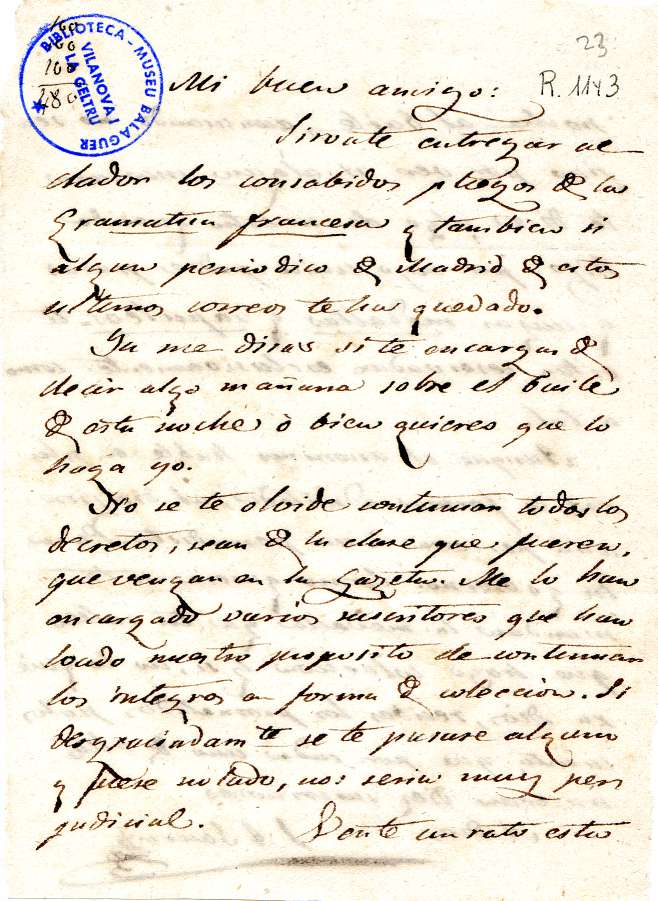 60
100
480
BIBLIOTECA - MUSEU BALAGUER
VILANOVA I
LA GELTRU
23
R. 1143
Mi buen amigo:
Sirvate entregar al
dador los consabidos pliegos de la
Gramatica francesa y tambien si
algun periodico de Madrid de estos
ultimos correos te ha quedado.
Ya me diras si te encargas de
decir algo mañana sobre el baile
de esta noche ò bien quieres que lo
haga yo.
No se te olvide continuar todos los
decretos, sean de la clase que fueren,
que vengan en la Gazeta. Me lo han
encargado varios suscritores que han
loado nuestro proposito de continuar
los integros en forma de coleccion. Si
desgraciadamte se te pasase alguno
y fuese notado, nos seria muy per
judicial.
Vente un rato esta